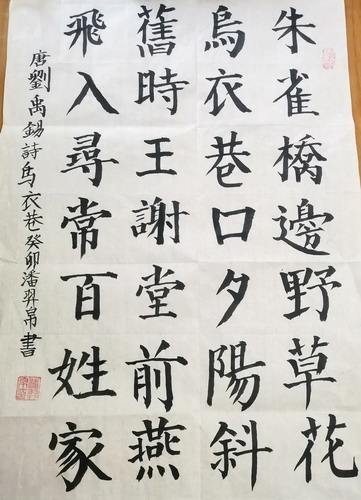 朱雀橋邊野草花
烏衣巷口夕陽斜
舊時王謝堂前燕
飛入尋常百姓家
唐劉禹錫詩烏衣巷癸卯潘羿帛書